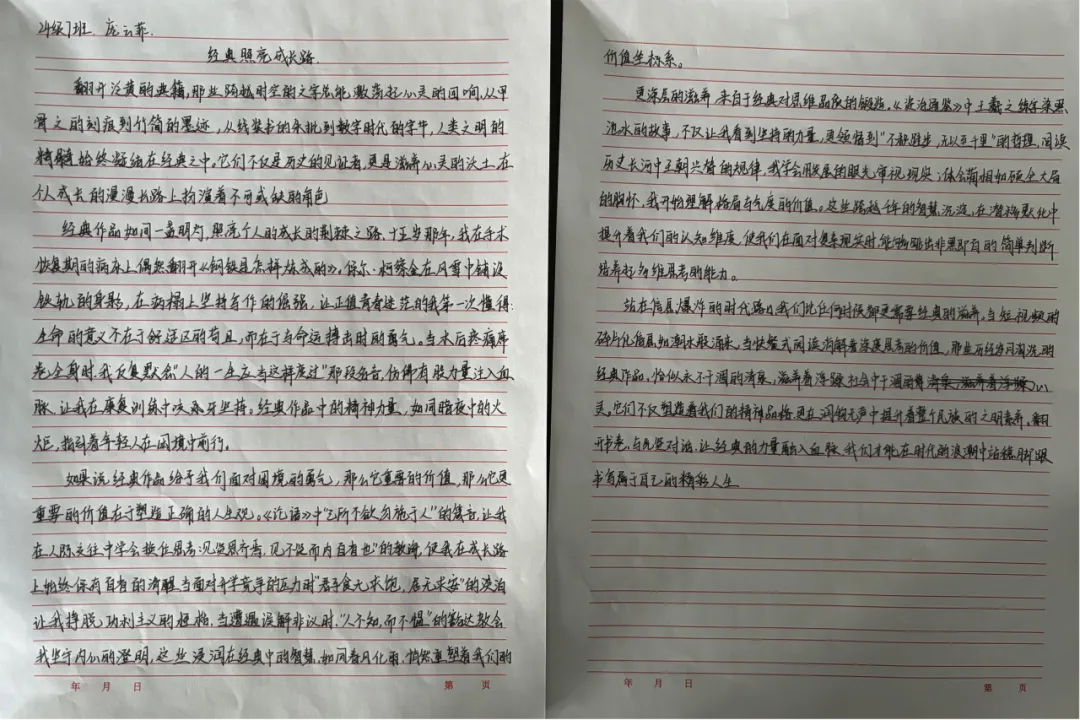 24级7班 庞云菲.
经典照亮成长路.
翻开泛黄的典籍,那些跨越时空的文字总能激荡起心灵的回响,从甲
骨文的刻痕到竹简的墨迹,从线装书的朱批到数字时代的字节,人类文明的
精髓始终凝结在经典之中,它们不仅是历史的见证者,更是滋养心灵的沃土.在
个人成长的漫漫长路上扮演着不可或缺的角色
经典作品如同一盏明灯,照亮个人的成长的荆棘之路.十五岁那年,我在手术
恢复期的病床上偶然翻开《钢铁是怎样炼成的》,保尔·柯察金在风雪中铺设
铁轨的身影,在病榻上坚持写作的倔强,让正值青春迷茫的我第一次懂得:
生命的意义不在于舒适区的苟且,而在于与命运搏击时的勇气。当术后疼痛席
卷全身时,我反复默念"人的一生应当这样度过"那段名言,仿佛有股力量注入血
脉,让我在康复训练中咬紧牙坚持。经典作品中的精神力量,如同暗夜中的火
炬,指引着年轻人在困境中前行。
如果说经典作品给予我们面对困境的勇气,那么它重要的价值,那么它更
重要的价值在于塑造正确的人生观。《论语》中"己所不欲勿施于人"的箴言,让我
在人际交往中学会换位思考;"见贤思齐焉,见不贤而内自省也"的教诲,使我在成长路
上始终保有自省的清醒.当面对升学竞争的压力时"君子食无求饱,居无求安"的淡泊
让我挣脱功利主义的桎梏.当遭遇误解非议时,"人不知,而不愠"的豁达教会
我坚守内心的澄明,这些浸润在经典中的智慧,如同春风化雨,悄然重塑着我们的
价值坐标系。
更深层的滋养,来自于经典对思维品质的锻造。《资治通鉴》中王羲之练字染黑
池水的故事,不仅让我看到坚持的力量,更领悟到"不积跬步,无以至千里"的哲理,阅读
历史长河中王朝兴替的规律,我学会用发展的眼光审视现实;体会蔺相如顾全大局
的胸怀,我开始理解格局与气度的价值。这些跨越千年的智慧沉淀,在潜移默化中
提升着我们的认知维度,使我们在面对复杂现实时,能够跳出非黑即白的简单判断
培养起多维思考的能力。
站在信息爆炸的时代路口,我们比任何时候都更需要经典的滋养。当短视频的
碎片化信息如潮水般涌来,当快餐式阅读消解着深度思考的价值,那些历经岁月淘洗的
经典作品,恰似永不干涸的清泉,滋养着浮躁社会中干涸的心
灵。它们不仅塑造着我们的精神品格,更在润物无声中提升着整个民族的文明素养。翻
开书卷,与先贤对话,让经典的力量融入血脉,我们才能在时代的浪潮中站稳脚跟
书写属于自己的精彩人生
年 月 日 第 页
年 月 日 第 页